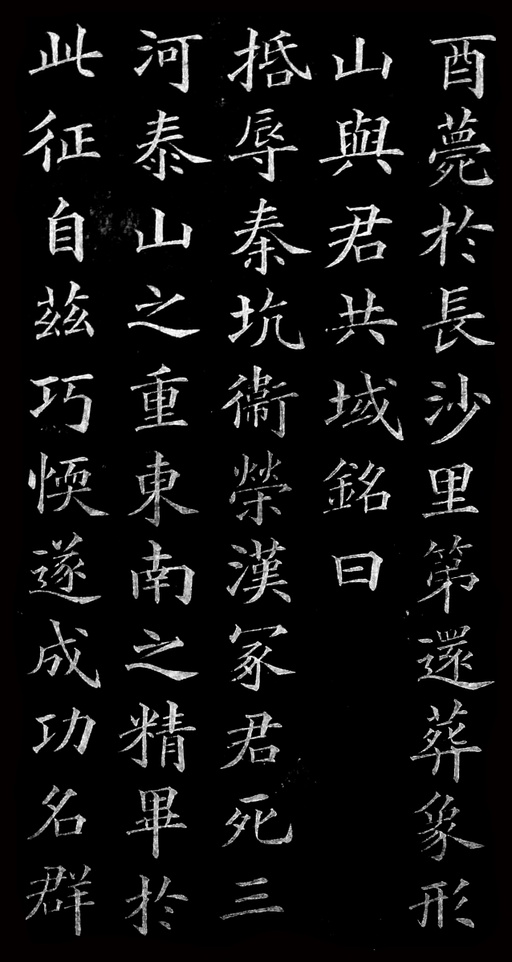 酉薨於長沙里第還葬象形
山與君共域銘曰
抵辱秦坑衛榮漢冢君死三
河泰山之重東南之精畢於
此征自茲巧㥕遂成功名群